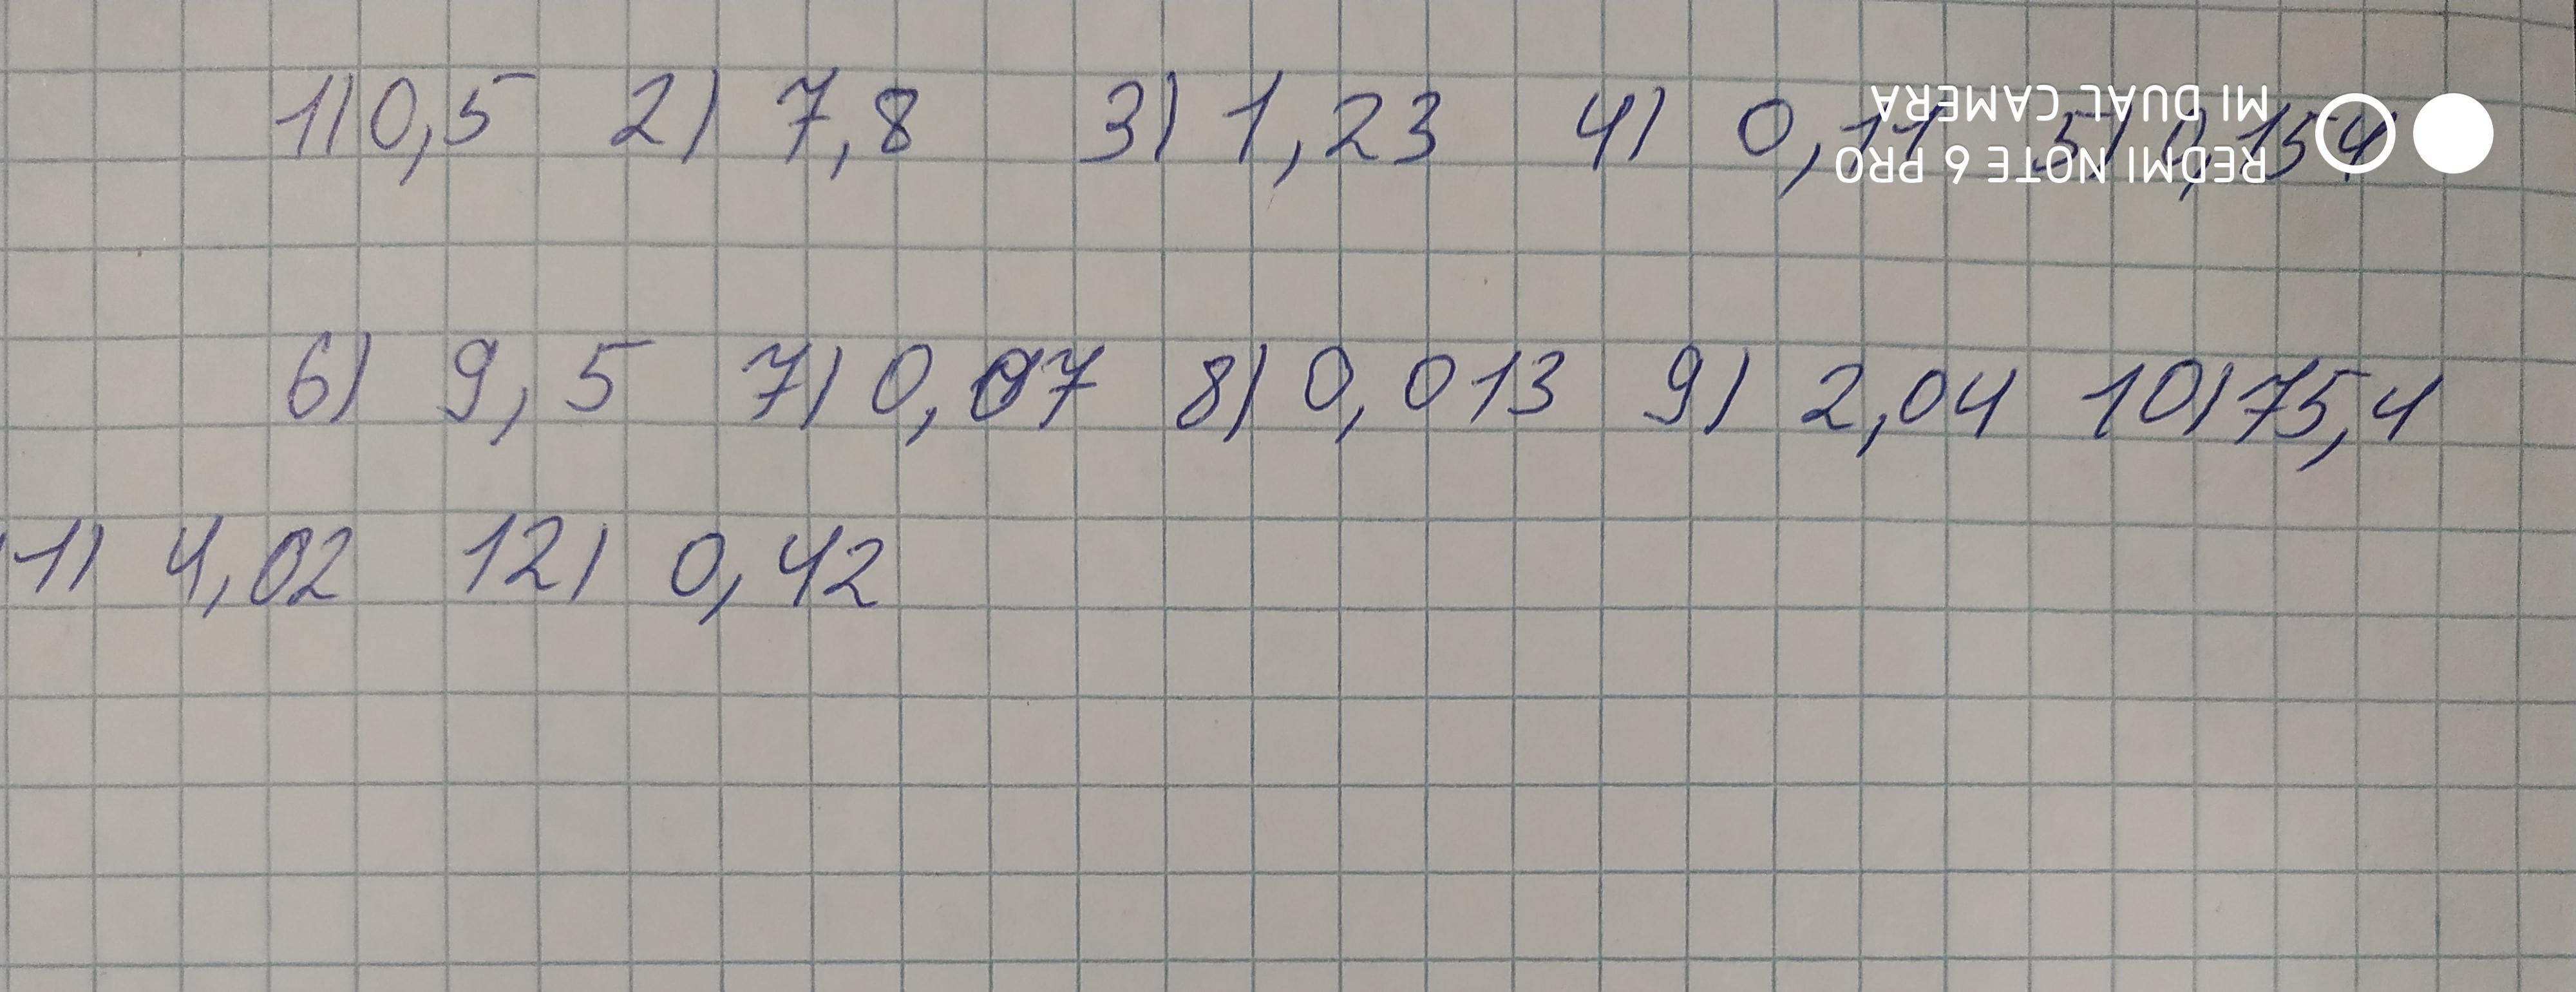 1) 0,5 2) 7,8 3) 1,23 4) 0,11 5) 0,154
6) 9,5 7) 0,07 8) 0,013 9) 2,04 10) 75,4
11) 4,02 12) 0,42
REDMI NOTE 6 PRO
MI DUAL CAMERA